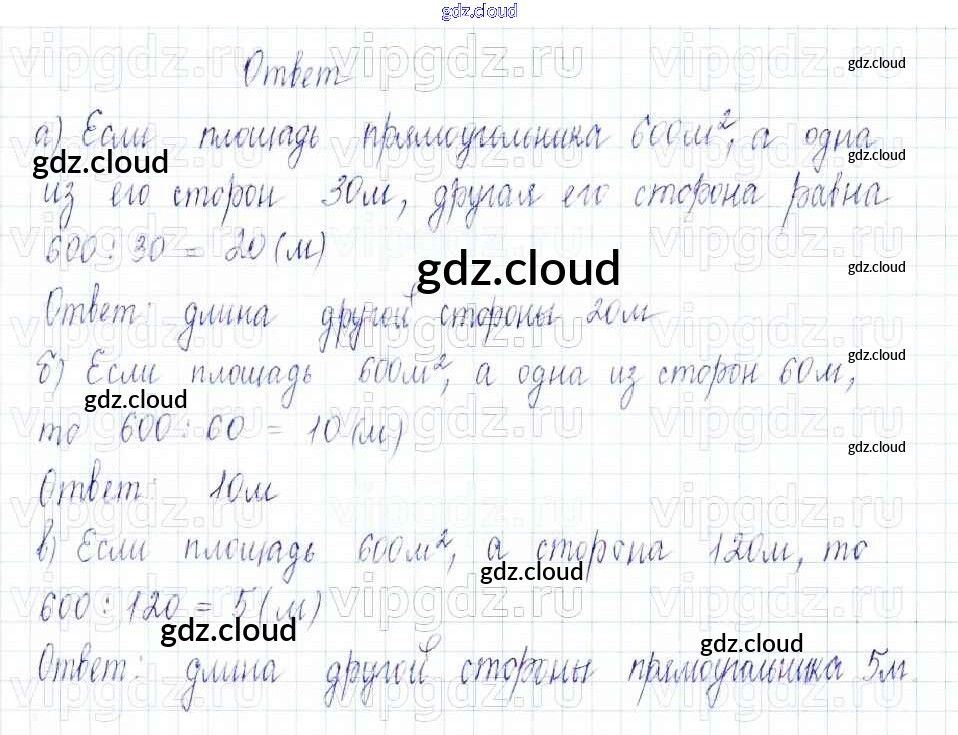 gdz.cloud
Ответ
а) Если площадь прямоугольника 600м², а одна
из его сторон 30м, другая его сторона равна
600 : 30 = 20 (м)
Ответ: длина другой стороны 20м
б) Если площадь 600м², а одна из сторон 60м,
то 600 : 60 = 10 (м)
Ответ: 10м
в) Если площадь 600м², а сторона 120м, то
600 : 120 = 5 (м)
Ответ: длина другой стороны прямоугольника 5м.
gdz.cloud
gdz.cloud
gdz.cloud
gdz.cloud
gdz.cloud
gdz.cloud
gdz.cloud
gdz.cloud
gdz.cloud
gdz.cloud
gdz.cloud
vipgdz.ru